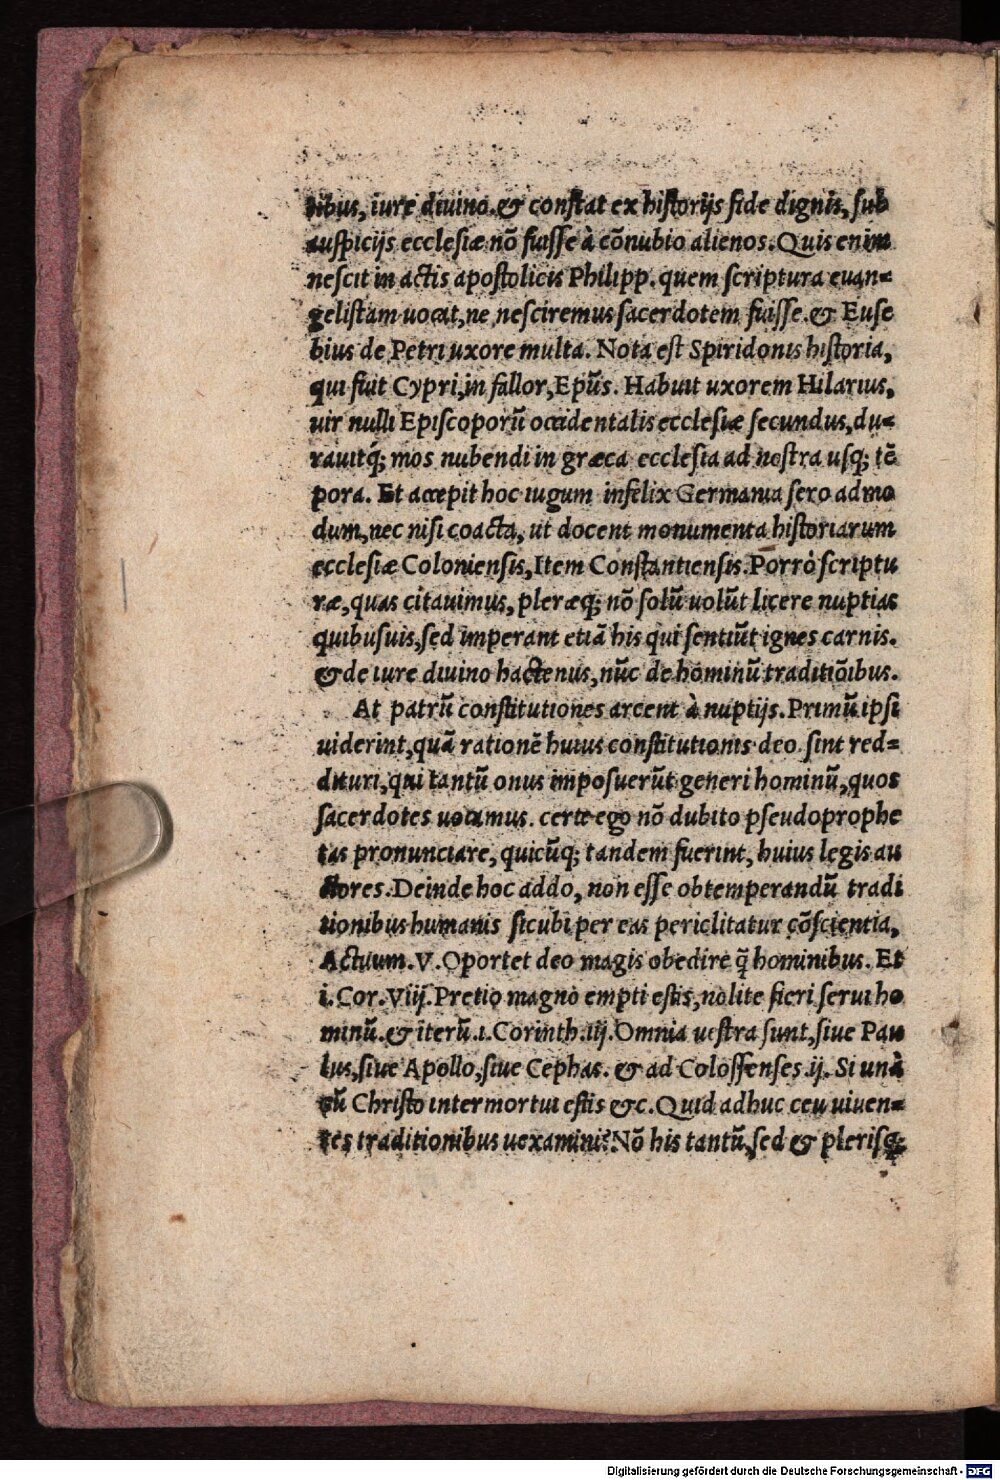 tibus, iure diuino. & constat ex historijs fide dignis, sub
auspicijs ecclesiæ nō fuisse à cōnubio alienos. Quis enim
nescit in actis apostolicis Philipp. quem scriptura euan=
gelistam uocat, ne nesciremus sacerdotem fuisse. & Euse
bius de Petri uxore multa. Nota est Spiridonis historia,
qui fuit Cypri, in fallor, Epūs. Habuit uxorem Hilarius,
uir nulli Episcoporū occidentalis ecclesiæ secundus, du=
rauitq́; mos nubendi in græca ecclesia ad nostra usq; tē
pora. Et accepit hoc iugum infelix Germania sero admo
dum, nec nisi coacta, ut docent monumenta historiarum
ecclesiæ Coloniensis, Item Constantiensis. Porrò scriptu
ræ, quas citauimus, pleræq; nō solū uolūt licere nuptias
quibusuis, sed imperant etiā his qui sentiūt ignes carnis.
& de iure diuino hactenus, nūc de hominū traditiōibus.
At patrū constitutiones arcent à nuptijs. Primū ipsi
uiderint, quā rationē huius constitutionis deo sint red=
dituri, qui tantū onus imposuerūt generi hominū, quos
sacerdotes uocamus. certe ego nō dubito pseudoprophe
tas pronunciare, quicūq; tandem fuerint, huius legis au
ctores. Deinde hoc addo, non esse obtemperandū tradi
tionibus humanis sicubi per eas periclitatur cōscientia,
Actuum. V. Oportet deo magis obedire q̄ hominibus. Et
i. Cor. Viij. Pretio magno empti estis, nolite fieri serui ho
minū. & iterū. 1. Corinth. iij. Omnia uestra sunt, siue Pau
lus, siue Apollo, siue Cephas. & ad Colossenses. ij. Si unà
cū Christo intermortui estis &c. Quid adhuc ceu uiuen=
tes traditionibus uexamini? Nō his tantū, sed & plerisq;
Digitalisierung gefördert durch die Deutsche Forschungsgemeinschaft - DFG